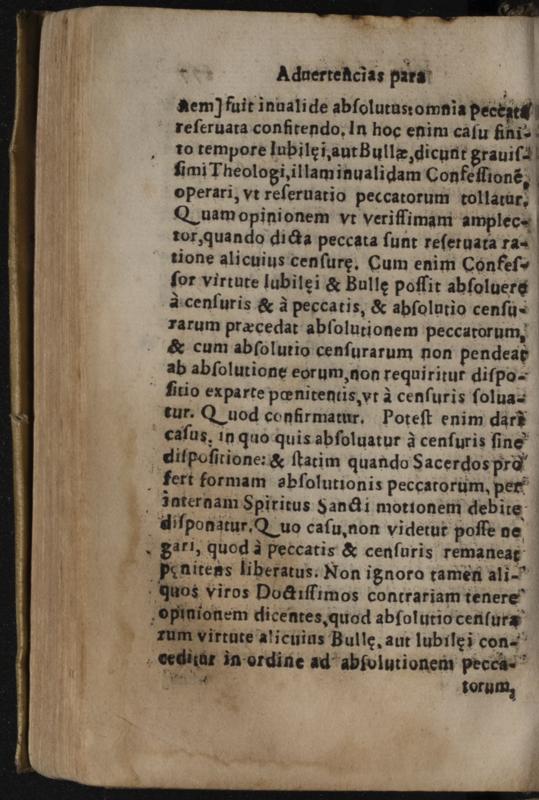 Aduertencias para
nem] fuit inualide absolutus: omnia peccata
reseruata confitendo. In hoc enim casu fini-
to tempore Iubilęi, aut Bullæ, dicunt grauis-
simi Theologi, illam inualidam Confessionē,
operari, vt reseruatio peccatorum tollatur.
Quam opinionem vt verissimam amplec-
tor, quando dicta peccata sunt reseruata ra-
tione alicuius censurę. Cum enim Confes-
sor virtute Iubilęi & Bullę possit absoluere
à censuris & à peccatis, & absolutio censu-
rarum præcedat absolutionem peccatorum,
& cum absolutio censurarum non pendeat
ab absolutione eorum, non requiritur dispo-
sitio ex parte pœnitentis, vt à censuris solua-
tur. Quod confirmatur. Potest enim dari
casus, in quo quis absoluatur à censuris sine
dispositione: & statim quando Sacerdos pro
fert formam absolutionis peccatorum, per
internam Spiritus Sancti motionem debite
disponatur. Quo casu, non videtur posse ne
gari, quod à peccatis & censuris remaneat
pęnitens liberatus. Non ignoro tamen ali-
quos viros Doctissimos contrariam tenere
opinionem dicentes, quod absolutio censura
rum virtute alicuius Bullę, aut Iubilęi con-
ceditur in ordine ad absolutionem pecca-
torum,